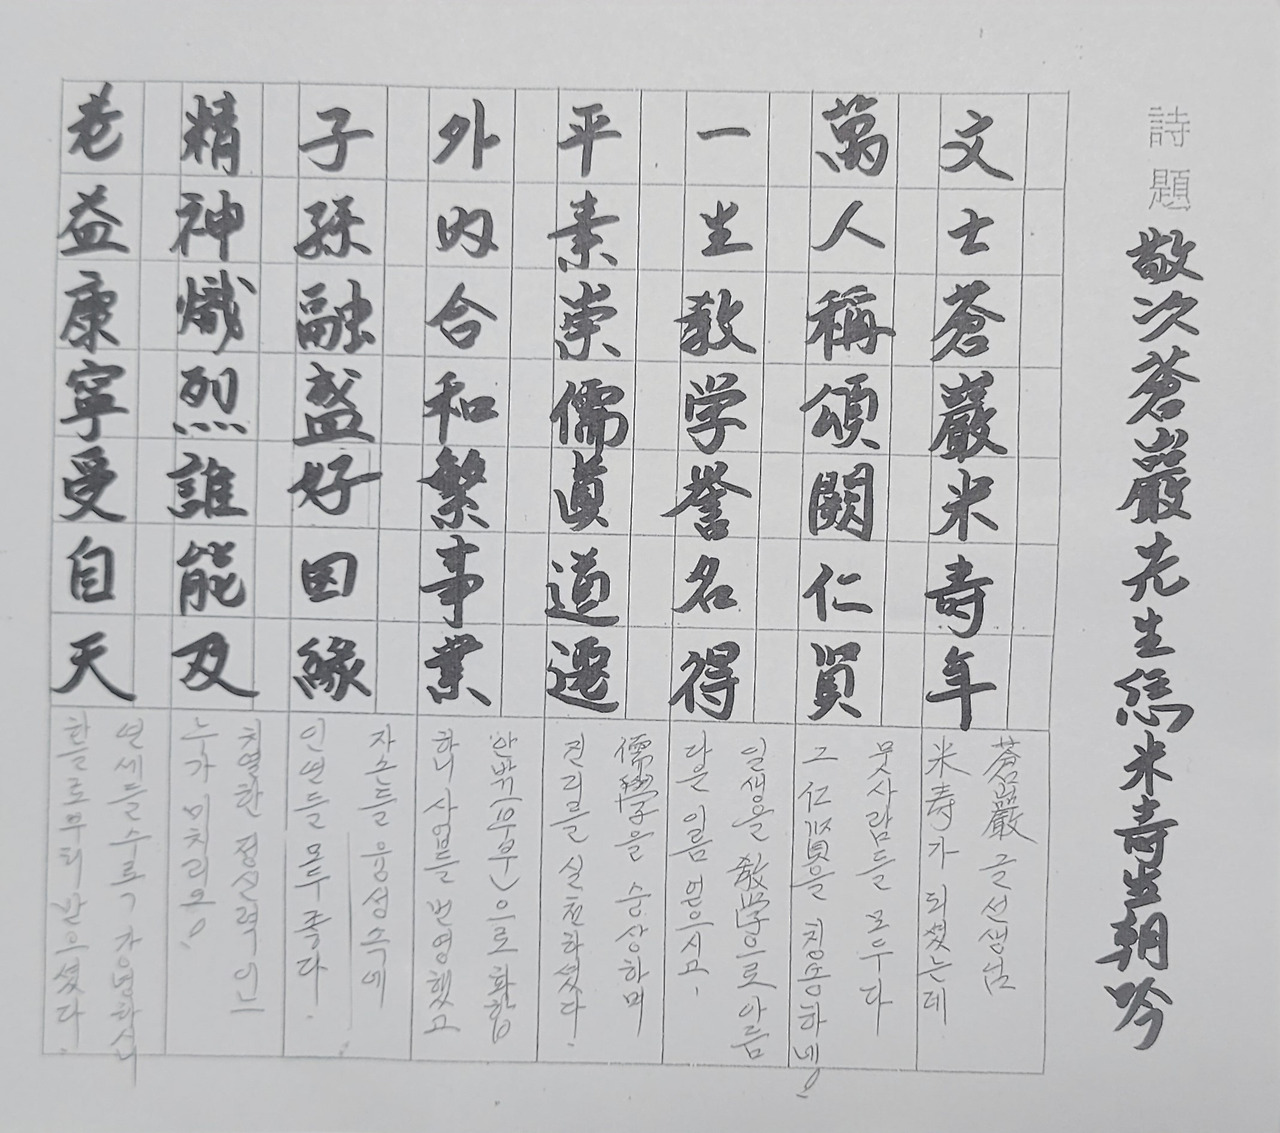 詩題 敬次蒼巖先生米寿生朝吟
文士蒼巖米寿年
萬人稱頌闕仁賢
一生教学誉名得
平素崇儒眞道遷
外內合和繁事業
子孫融盛好因緣
精神熾烈誰能及
老益康寧受自天
蒼巖 글선생님
米寿가 되셨는데
뭇사람들 모두다
그 仁賢을 칭송하네
일생을 教学으로 아름
다운 이름 얻으시고.
儒學을 숭상하며
진리를 실천하셨다.
안밖(부부)으로 화합
하니 사업들 번영했고
자손들
인연들 모두 좋다.
치열한
누가 미치리오
연세들수록 강녕하시니
하늘로부터 받으셨다.